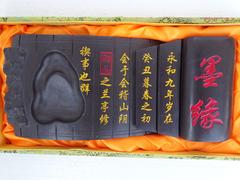 墨缘
永和九年岁在
癸丑暮春之初
会于会稽山阴
之兰亭修
禊事也群